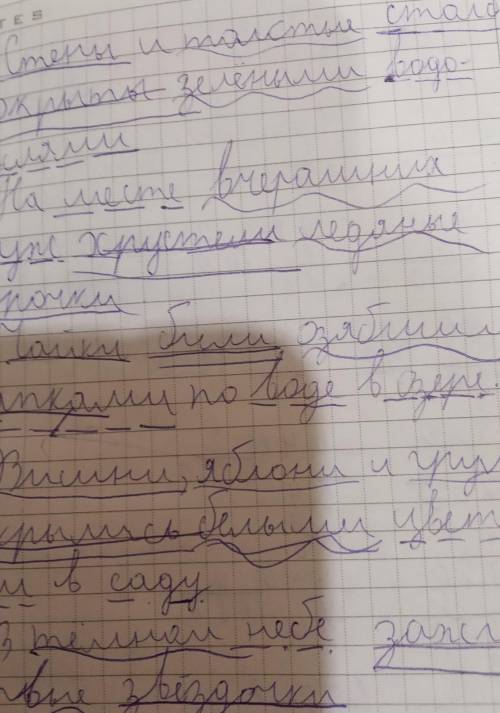 TES
Стены и толстые столб
окрыты зелёными водо-
слями
На месте вчерашних
уж хрустели ледяные
рочки
Чайки били озябши
пками по воде в озере.
Вишни, яблони и груш
крылись белыми цвет
ми в саду.
В тёмном небе зажг
рвые звёздочки